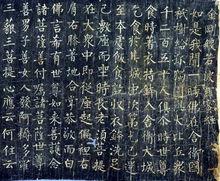 金剛般若波羅蜜經
如是我聞一時佛在舍衛國
祇樹給孤獨園與大比丘眾
千二百五十人俱尒時世尊
食時著衣持鉢入舍衛大城
乞食於其城中次第乞已還
至本處飯食訖收衣鉢洗足
已敷座而坐時長老須菩提
在大眾中即從座起偏袒右
肩右膝著地合掌恭敬而白
佛言希有世尊如來善護念
諸菩薩善付囑諸菩薩世尊
善男子善女人發阿耨多羅
三藐三菩提心應云何住云